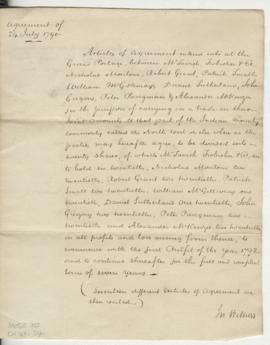 Agreement of
24 July 1790
Articles of Agreement entered into at the
Grand Portage between McTavish Frobisher & Co.
Nicholas Montour, Robert Grant, Patrick Small
William McGillivray, Daniel Sutherland, John
Gregory, Peter Pangman & Alexander McKenzie
for the purpose of carrying on a trade on their
joint accounts to that part of the Indian Country
commonly called the North west or else where as the
parties may hereafter agree, to be divided into
twenty shares, of which McTavish Frobisher & Co. are
to hold twentieths, Nicholas Montour two
twentieths, Robert Grant two twentieths, Patrick
Small two twentieths, William McGillivray one
twentieth, Daniel Sutherland one twentieth, John
Gregory two twentieths, Peter Pangman two
twentieths and Alexander McKenzie two twentieths
in all profits and loss arising from thence, to
commence with the first Outfit of the Year 1792
and to continue thereafter for the full and complete
term of seven Years —
( Seventeen different articles of Agreement are
then recited — )
In Witness